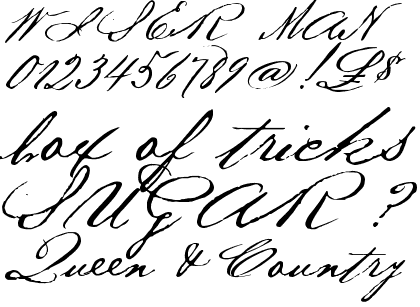 WISER MAN
0123456789@!£$
box of tricks
SUGAR?
Queen & Country